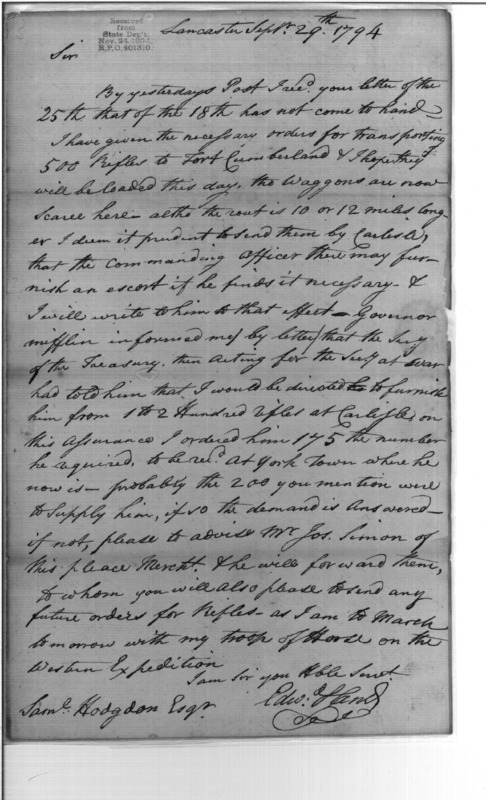 Received
from
State Dep't.
Nov. 24, 1894.
R.P.O. 401310.
Lancaster Septr. 29th. 1794
Sir
By yesterdays Post I recd. your letter of the
25th that of the 18th has not come to hand—
I have given the necessary orders for transporting
500 Rifles to Fort Cumberland & I hope they'l
will be loaded this day, the Waggons are now
scarce here— altho the rout is 10 or 12 miles long-
er I deem it prudent to send them by Carlisle,
that the Commanding Officer there may fur-
nish an escort if he finds it necessary— &
I will write to him to that effect— Governor
mifflin informed me (by letter) that the Secy
of the Treasury. then acting for the Secy at War
had told him that I would be directed to furnish
him from 1 to 2 Hundred rifles at Carlisle, on
this assurance I ordered him 175 the number
he required, to be recd. at York Town where he
now is— probably the 200 you mention were
to supply him, if so the demand is answered—
if not, please to advise Mr Jos. Simon of
this pleace Mercht. & he will forward them,
to whom you will also please to send any
future orders for Rifles— as I am to March
tomorrow with my troop of Horse on the
Western Expedition
I am Sir you Hble Servt.
Edwd. Hand
Saml. Hodgdon Esqr.